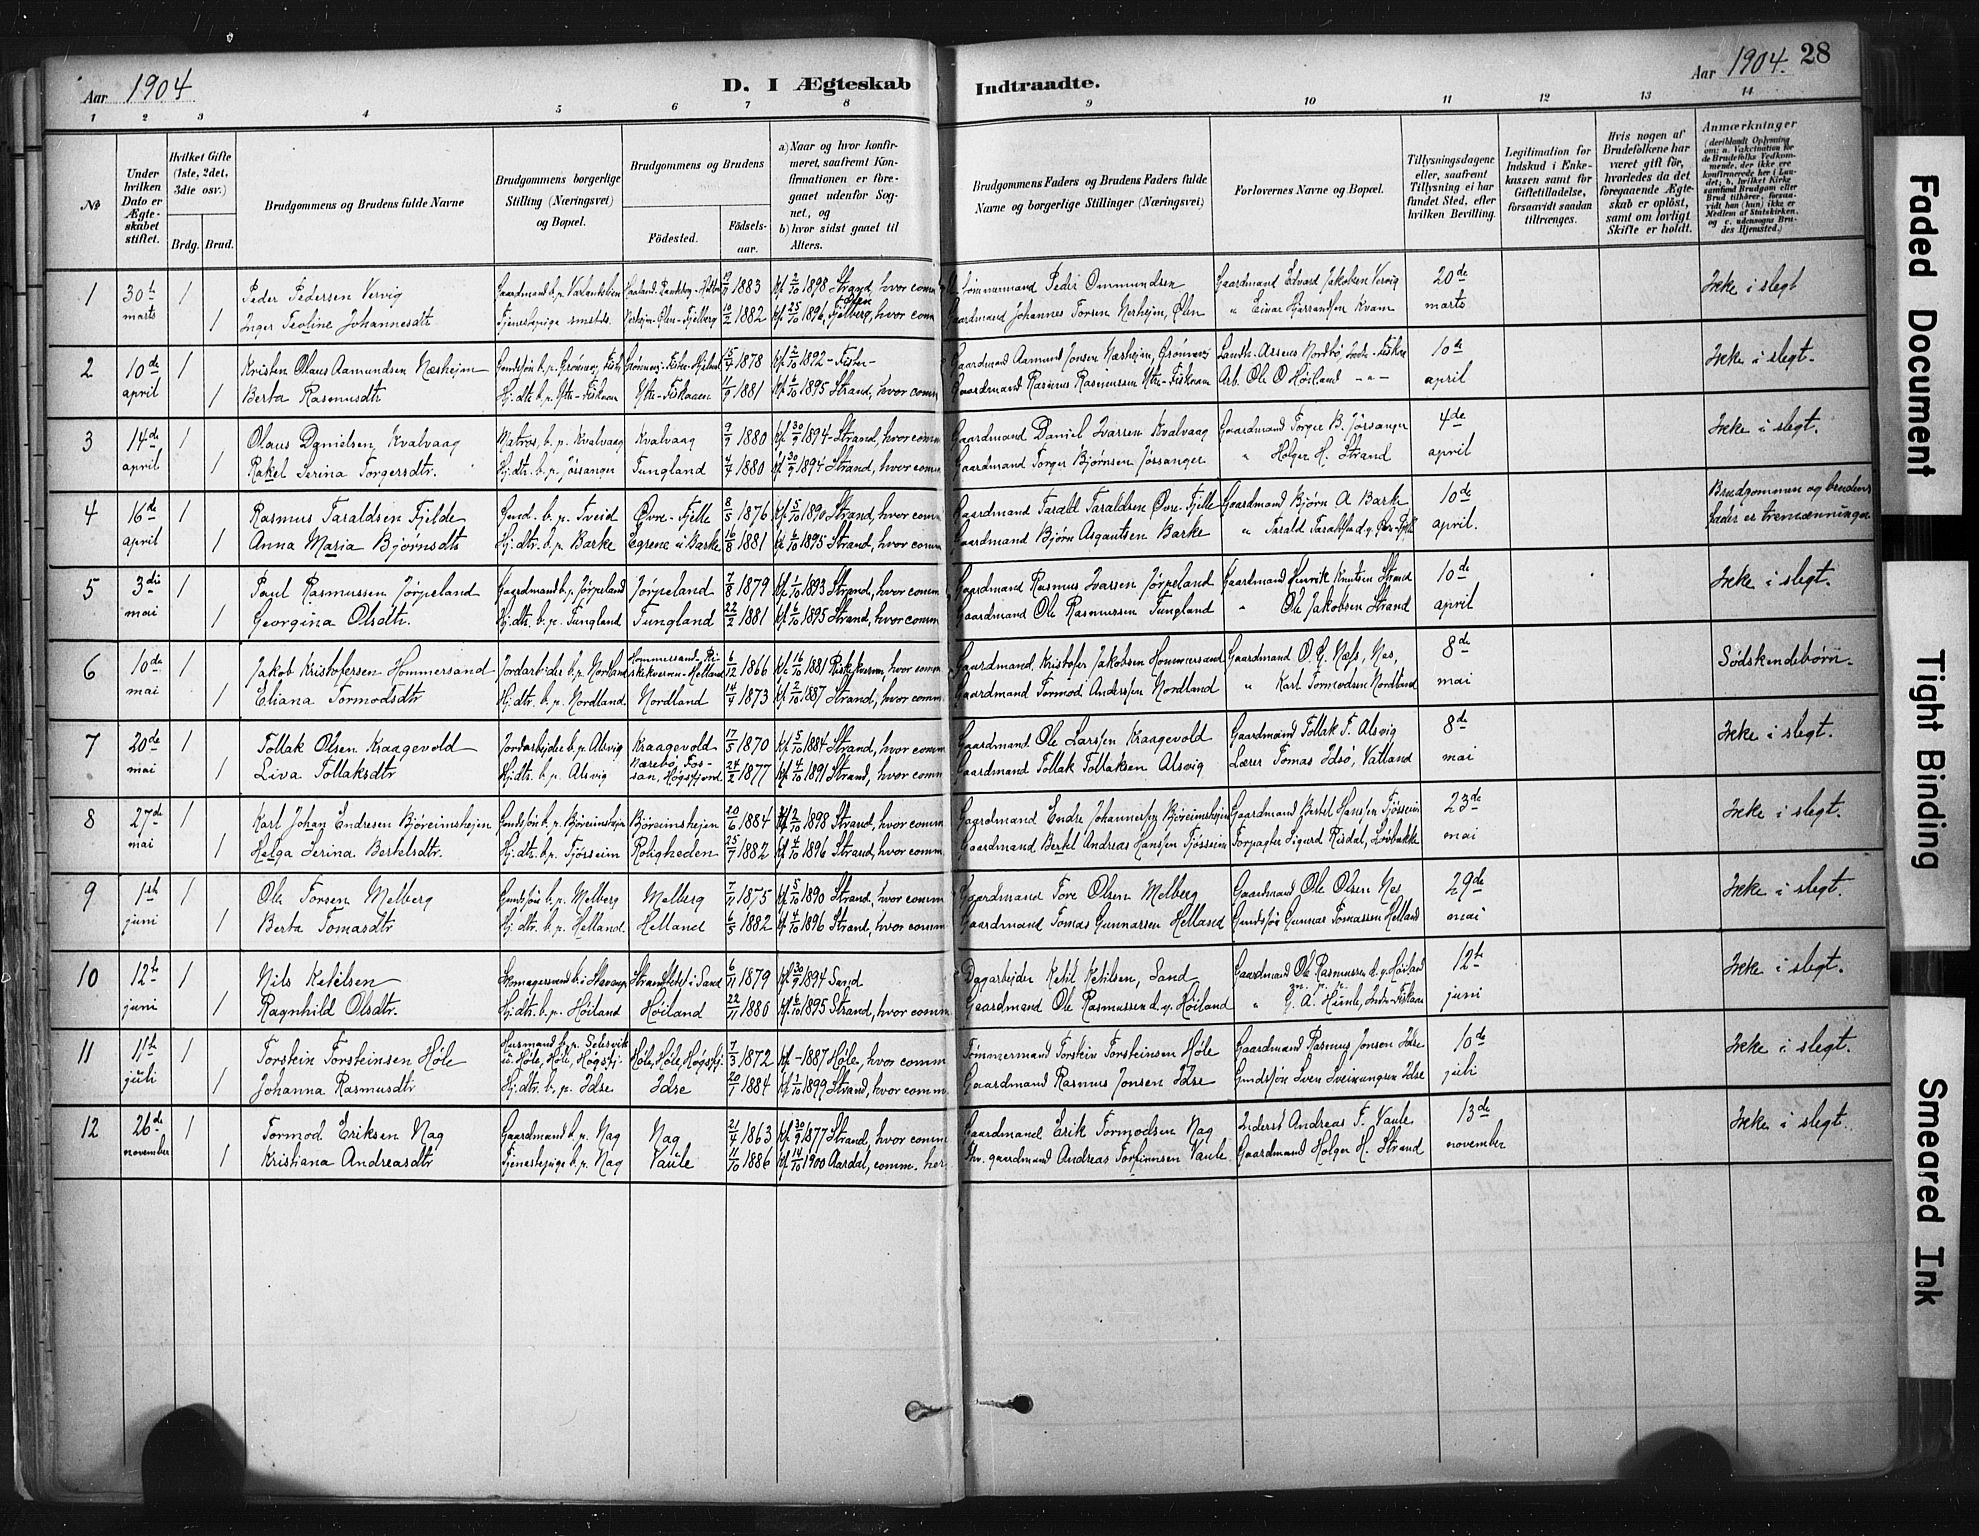 Aar 1904 D. I Ægteskab Indtraadte. Aar 1904. 28
1 2 3 4 5 6 7 8 9 10 11 12 13 14
№
Under hvilken Dato er Ægteskabet stiftet.
Hvilket Gifte (1ste, 2det, 3die osv.)
Brdg. Brud.
Brudgommens og Brudens fulde Navne
Brudgommens borgerlige Stilling (Næringsvei) og Bopæl.
Brudgommens og Brudens
Födested. Födselsaar.
a) Naar og hvor konfirmeret, saafremt Konfirmationen er foregaaet udenfor Sognet, og
b) hvor sidst gaaet til Alters.
Brudgommens Faders og Brudens Faders fulde Navne og borgerlige Stillinger (Næringsvei)
Forlovernes Navne og Bopæl.
Tillysningsdagene eller, saafremt Tillysning ei har fundet Sted, efter hvilken Bevilling.
Legitimation for Indskud i Enkekassen samt for Giftetilladelse, forsaavidt saadan tiltrænges.
Hvis nogen af Brudefolkene har været gift för, hvorledes da det foregaaende Ægteskab er oplöst, samt om lovligt Skifte er holdt.
Anmærkninger
1 30te 1 Peder Pedersen Vervig 1883 1898 Strand, hvor comm Tömmermand Peder Ommundsen Gaardmand Edvard Jakobsen Vervig 20de Ikke i slegt
marts 1 Inger Teoline Johannesdtr Tjenestepige smsts. 10/2 1882 25/10 1896, Fjelberg, hvor comm Gaardmand Johannes Torsen Nerheim, Ølen " Einar Kvam marts
2 10de 1 Kristen Olaus Aamundsen Næsheim 15/7 1878 1892 - Fister - Gaardmand Aamund Jonsen Næsheim, 10de Ikke i slegt.
april 1 Berta Rasmusdtr Hj. dtr. b. p. Ytre-Fiskaaen Ytre-Fiskaaen 1881 1895 Strand, hvor comm Gaardmand Rasmus Rasmussen Ytre-Fiskaaen Arb. Ole O Höiland - " - april
3 14de 1 Olaus Danielsen Kvalvaag Matros, b. p. Kvalvaag Kvalvaag 1880 Kf 30/9 1894 Strand, hvor comm Gaardmand Daniel Ivarsen Kvalvaag Gaardmand Torger B. Jøssanger 4de Ikke i slegt.
april 1 Rakel Serina Torgersdtr. Hj. dtr. b. p. Jøssanger Tungland 4/7 1880 Kf 30/9 1894 Strand, hvor comm Gaardmand Torger Bjørnsen Jøssanger " Holger H. Strand april
4 16de 1 Rasmus Taraldsen Fjelde Gmd. b. p. Tveid Øvre-Fjelle 8/5 1876 Kf 5/10 1890 Strand, hvor comm Gaardmand Tarald Taraldsen Øvre-Fjelle Gaardmand Bjørn A Barke 10de Brudgommen og brudens
april 1 Anna Maria Bjørnsdtr Hj. dtr. b. p. Barke Barke 16/8 1881 Kf 6/10 1895 Strand, hvor comm Gaardmand Bjørn Asgautsen Barke april. fader er tremænninger
5 3die 1 Paul Rasmussen Jørpeland Gaardmand b. p. Jørpeland Jørpeland 7/8 1879 Kf 1/10 1893 Strand, hvor comm Gaardmand Rasmus Ivarsen Jørpeland Gaardmand Henrik Knutsen Strand 10de Ikke i slegt.
mai 1 Georgina Olsdtr. Hj. dtr. b. p. Tungland Tungland 22/2 1881 Kf 6/10 1895 Strand, hvor comm Gaardmand Ole Rasmussen Tungland " Ole Jakobsen Strand april
6 10de 1 Jakob Kristofersen Hommersand Jordarbeider b. p. Nordland Hommersand- 6/12 1866 Kf 16/10 1881 hvor comm Gaardmand Kristofer Jakobsen Hommersand Gaardmand O. G. Næss, Nes, 8de Sødskendebørn.
mai 1 Eliana Tormodsdtr Hj. dtr. b. p. Nordland Nordland 14/9 1873 Kf 2/10 1887 Strand, hvor comm Gaardmand Tormod Anderssen Nordland " Karl Tormodsen Nordland mai
7 20de 1 Tollak Olsen Kraagevold Jordarbejder b. p. Alsvig Kraagevold 17/5 1870 Kf 5/10 1884 Strand, hvor comm Gaardmand Ole Larssen Kraagevold Gaardmand Tollak T. Alsvig 8de Ikke i slegt.
mai 1 Liva Tollaksdtr Hj. dtr. b. p. Alsvig Högsfjord 24/2 1877 Kf 4/10 1891 Strand, hvor comm Gaardmand Tollak Tollaksen Alsvig Lærer Tomas Idsö, Vatland mai
8 27de 1 Karl Johan Endresen Björeimshejen Gmdsön b. p. Björeimshejen Björeimshejen 20/6 1884 Kf 2/10 1898 Strand, hvor comm Gaardmand Endre Johannesen Björeimshejen Gaardmand Bertel Hanssen Tjösseim 23de Ikke i slegt.
mai 1 Helga Serina Bertelsdtr. Hj. dtr. b. p. Tjösseim Roligheden 25/7 1882 Kf 4/10 1896 Strand, hvor comm Gaardmand Bertel Andreas Hanssen Tjösseim Forpagter Sigurd Risdal, Lövbrække mai
9 1ste 1 Ole Torsen Melberg Gmdsön b. p. Melberg Melberg 7/11 1875 Kf 5/10 1890 Strand, hvor comm Gaardmand Tore Olsen Melberg Gaardmand Ole Olsen Nes 29de Ikke i slegt.
juni 1 Berta Tomasdtr Hj. dtr. b. p. Helland Helland 6/5 1882 Kf 4/10 1896 Strand, hvor comm Gaardmand Tomas Gunnarsen Helland Gmdsön Gunnar Tomassen Helland mai
10 12te 1 Nils Ketilsen Skomagersvend b. i Stavanger i Sand 6/11 1879 Kf 30/9 1894 Sand Dagarbejder Ketil Ketilsen, Sand Gaardmand Ole Rasmussen d. y. Höiland 12te Ikke i slegt.
juni 1 Ragnhild Olsdtr. Hj. dtr. b. p. Höiland Höiland 22/11 1880 Kf 6/10 1895 Strand, hvor comm Gaardmand Ole Rasmussen d. y. Höiland " G. A. Humle, Indre-Fiskaaen juni
11 11te 1 Torstein Torsteinsen Höle Husmand b. p. Selsvik u. Höle, Höle, Högsfj. Höle, Höle, Högsfj. 7/3 1872 Kf -1887 Höle, hvor comm Tömmermand Torstein Torsteinsen Höle Gaardmand Rasmus Jonsen Idse 10de Ikke i slegt.
juli 1 Johanna Rasmusdtr Hj. dtr. b. p. Idse Idse 20/1 1884 Kf 1/10 1899 Strand, hvor comm. Gaardmand Rasmus Jonsen Idse Gmdsön Sven Sveinungsen Idse juli
12 26de 1 Tormod Eriksen Nag Gaardmand b. p. Nag Nag 21/4 1863 Kf 30/9 1877 Strand, hvor comm Gaardmand Erik Tormodsen Nag Inderst Andreas T. Vaule 13de Ikke i slegt.
november 1 Kristiana Andreasdtr Tjenestepige b. p. Nag Vaule 11/10 1886 Kf 14/10 1900 Aardal, comm. her. fhv. gaardmand Andreas Torfinnsen Vaule Gaardmand Holger H. Strand november
Faded Document
Tight Binding
Smeared Ink